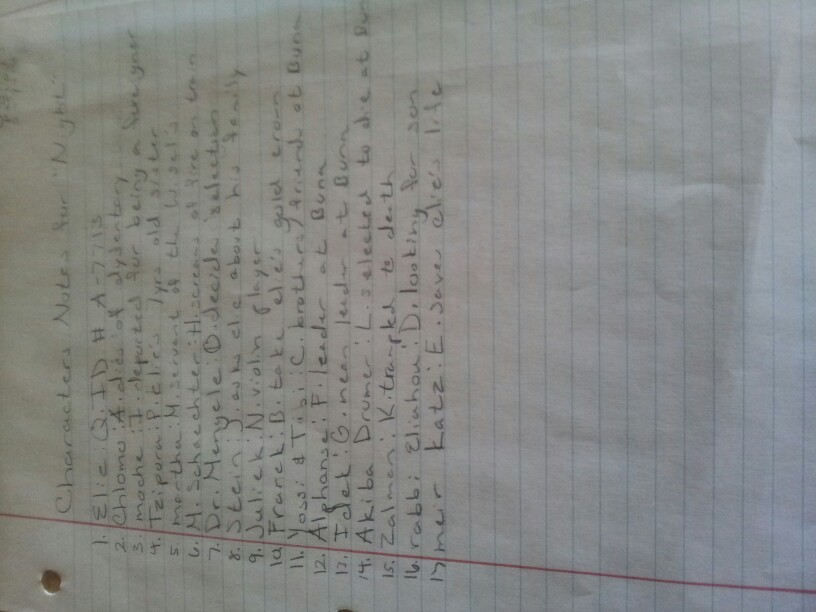 Characters Notes for "Night"
1. Elie: Q. ID # A-7713
2. Chlomo: A. dies of dysentary
3. moche: I. deported for being a foreigner
4. Tzipora: P. Elie's 7yrs old sister
5. martha: M. servant of the Wisel's
6. M. Schaechter: H. screams of fire on train
7. Dr. Mengele: O. decide selection
8. Stein: J. asks elie about his family
9. Juliek: N. violin player
10. Franek: B. take elie's gold crown
11. Yossi & Tibi: C. brothers/friends at Buna
12. Alphonse: F. leader at Buna
13. Idek: G. mean leader at Buna
14. Akiba Drumer: L. selected to die at Buna
15. Zalman: K. trampled to death
16. rabbi Eliahou: D. looking for son
17 meir Katz: E. saves elie's life